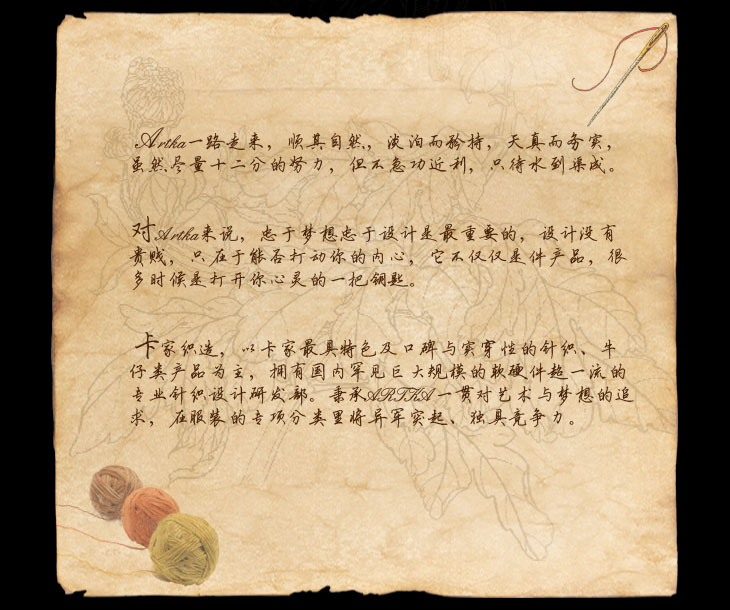 Artka一路走来，顺其自然，淡泊而矜持，天真而务实，
虽然尽量十二分的努力，但不急功近利，只待水到渠成。
对Artka来说，忠于梦想忠于设计是最重要的，设计没有
贵贱，只在于能否打动你的内心，它不仅仅是件产品，很
多时候是打开你心灵的一把钥匙。
卡家织造，以卡家最具特色及口碑与实穿性的针织、牛
仔类产品为主，拥有国内罕见巨大规模的软硬件超一流的
专业针织设计研发部。秉承ARTKA一贯对艺术与梦想的追
求，在服装的专项分类里将异军突起、独具竞争力。